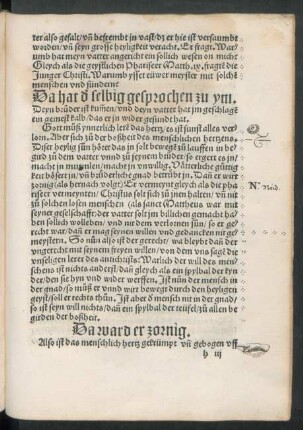 ter also gefalt/vñ befrembt in vast/dz er hie ist versaumbt
worden/vñ seyn grosse heyligkeit veracht. Er fragt. War=
umb hat meyn vatter angericht ein sollich wesen on mich?
Gleych als die geystlichen Phariseer Matth. ix. fragtē die
Junger Christi. Warumb ysset eüwer meyster mit solchē
menschen vnd sünderē
Da hat d selbig gesprochen zu ym.
Deyn brůder ist kumen/vnd deyn vatter hat jm geschlagē
ein gemest kalb/das er jn wider gesund hat.
Gott můß ynnerlich leyē das hertz/es ist sunst alles ver=
lorn. Aber sich zů der boßheit des menschlichen hertzens.
Diser heylig sün hōret das in solt bewegē zů lauffen in be=
gird zů dem vatter vnd zů seynem brůder/so ergert es jn/
macht jn mürmlen/macht jn vnwillig. Vätterliche gütig
keit hōret jn/vnd brůderliche gnad betrübt jn. Dañ er wirt
zornig/als hernach volgt. Er vermeynt gleych als die pha
riseer vermeynten/Christus solt sich zů jnen halten/vñ nit
zů solchen losen menschen (als sanct Mattheus war mit
seyner geselschafft) der vatter solt jm billichen gemacht ha
ben sollich wolleben/vnd nit dem verlornen sün/so er ge=
recht war/dañ er mag seynen willen vnd gedancken nit ge
meystern. So nun also ist der gerecht/wa bleybt dañ der
vngerecht mit seynem freyen willen/von dem vns sagē die
vnseligen lerer des antichrists: Warlich der will des men=
schens ist nichts anderst/dañ gleych als ein spylbal der kyn
der/den sy hyn vnd wider werffen. Ist nūn der mensch in
der gnad/so můß er vnd würt bewegt durch den heyligen
geyst/soll er rechts thůn. Ist aber d mensch nit in der gnad/
so ist seyn will nichts/dañ ein spylbal der teüfel/zů allen be
girden der boßheit.
Da ward er zornig.
Also ist das menschlich hertz gekrümpt vñ gebogen vff
h iij